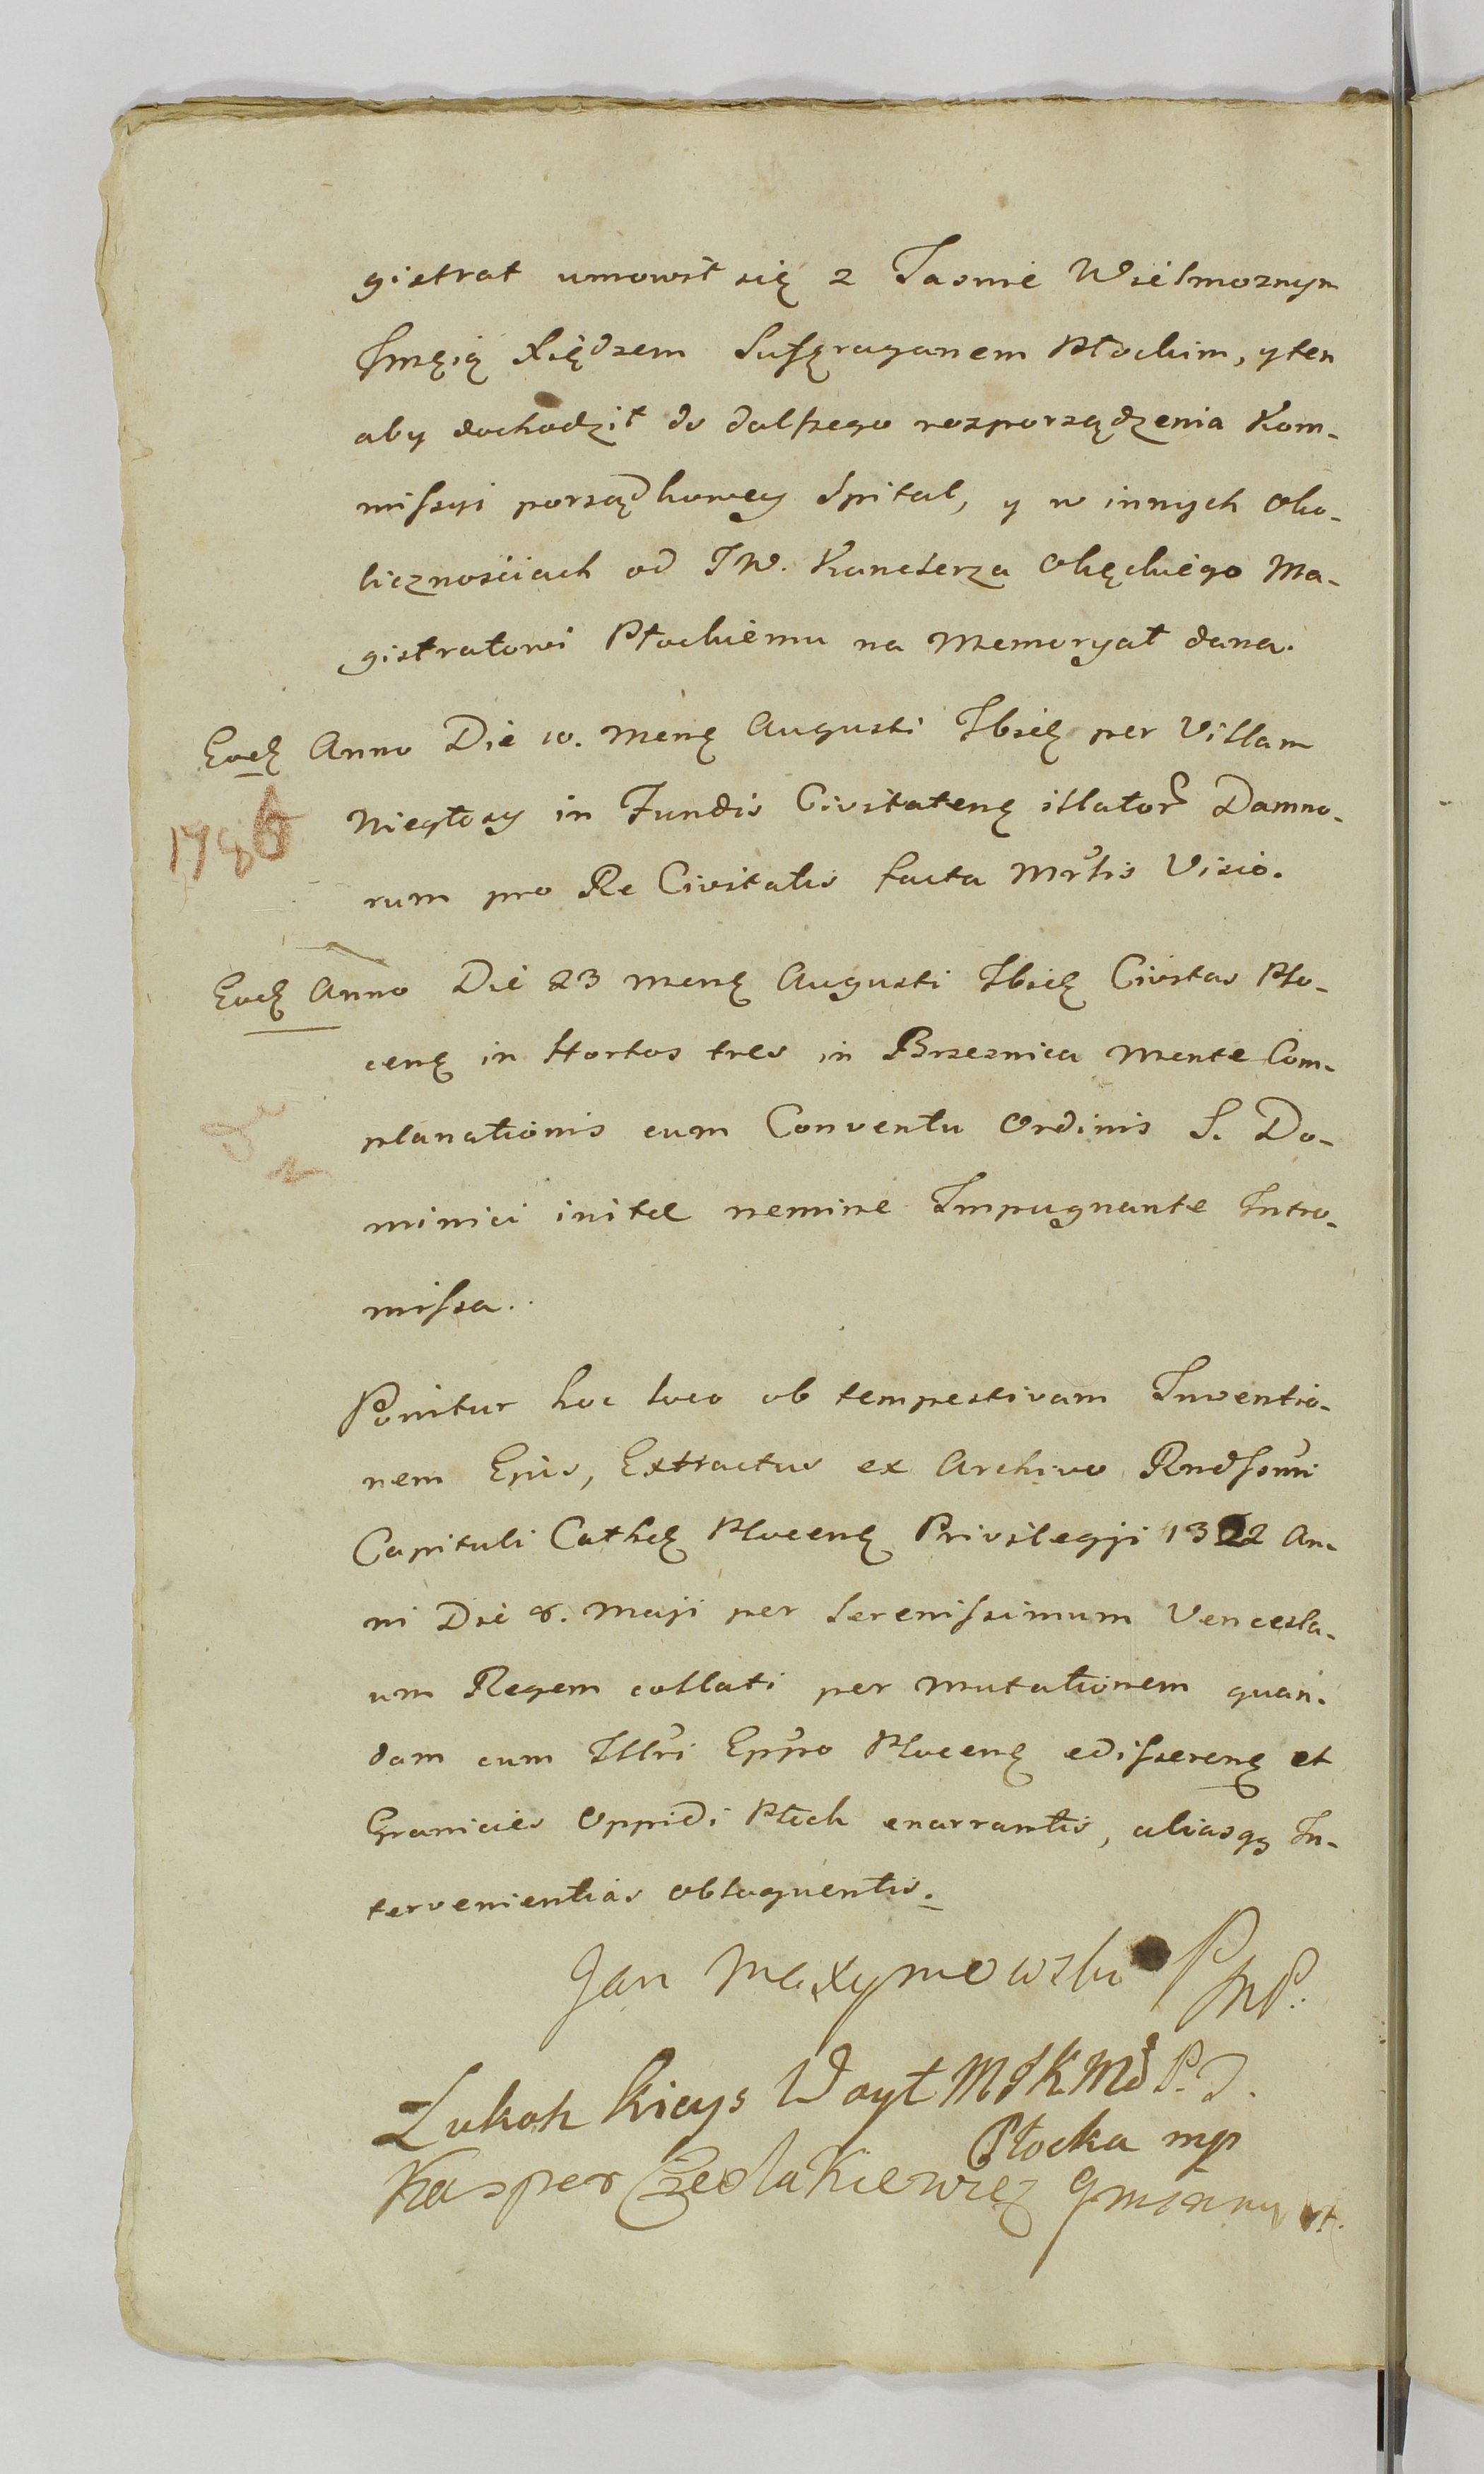 gistrat umowił się z Jasnie Wielmoznym
Jmcią Xiędzem Suffraganem Płockim, y ten
aby dochodził do dalszego rozporządzenia Kom-
missyi porządkowey Szpital, y w innych Oko-
licznościach od JW. Kanclerza Okęckiego Ma-
gistratowi Płockiemu na Memoryał dana.
Eodē Anno Die 10. Mensē Augusti Ibidē per Villam
1786
Niegłosy in Fundis Civitatensē illator Damno-
rum pro Re Civitatis facta Mrlis Visio.
Eodē Anno Die 23 Mensē Augusti Ibidē Civitas Plo-
censē in Hortos tres in Brzeznica Mente Com-
planationis cum Conventu Ordinis S. Do-
minici initæ nemine Impugnante Intro-
missa..
Ponitur hoc loco ob tempestivam Inventio-
nem Ejus, Extractus ex Archivo Rndssmi
Capituli Cathē Plocensē Privilegji 1322 An-
ni Die 8. Maji per Serenissimum Vencesla-
um Regem collati per mutationem quan-
dam cum Illri Eppo Plocensē edisserensē et
Granicies Oppidi Płock enarrantis, aliasq In-
tervenientias obloquentis.
Jan Maxymowski PMP.
Łukasz Kicys Woyt MJKMci P. J.
Płocka mp
Kasper Czeslakiewicz Gminny